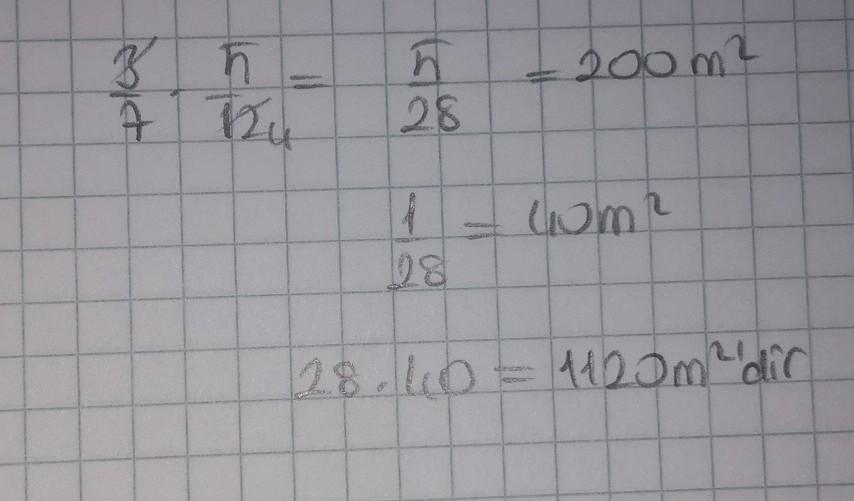 3/7 · 5/12 4 = 5/28 = 200m²
1/28 = 40m²
28.40 = 1120m²'dir